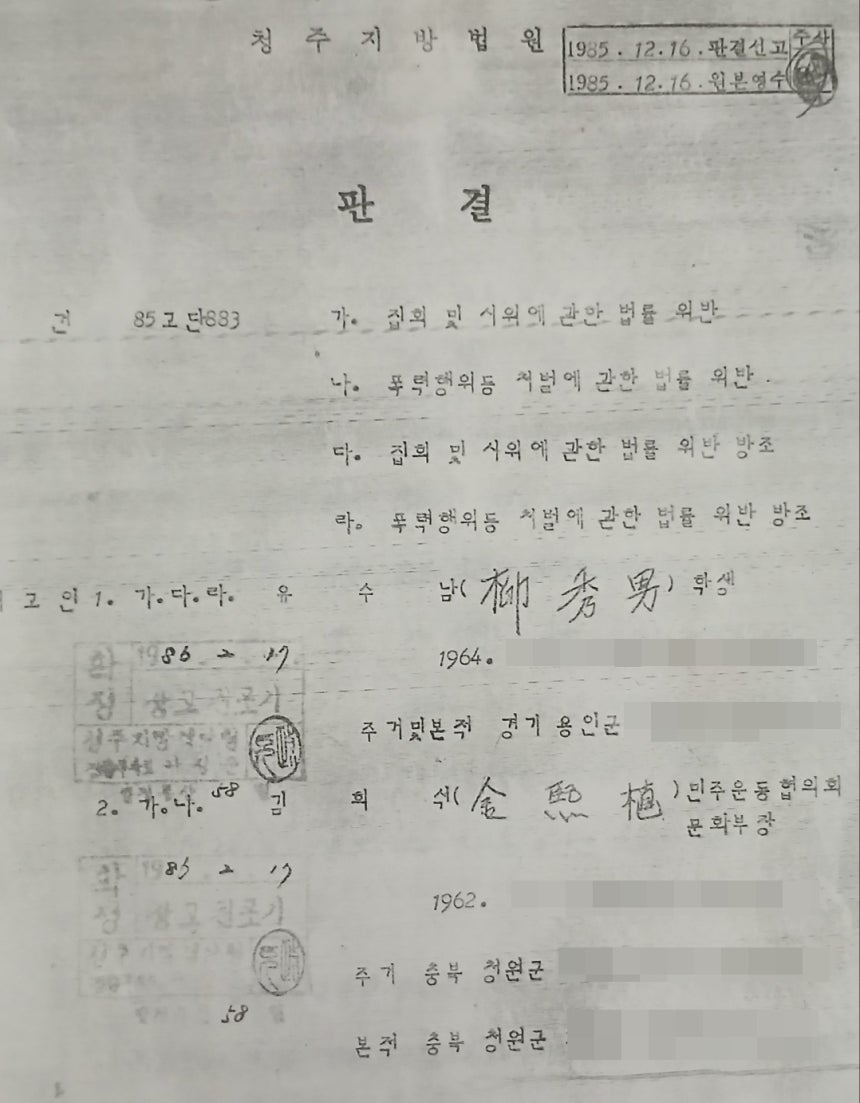 청주지방법원
1985. 12. 16. 판결선고
1985. 12. 16. 원본영수
판 결
건 85고단883 가. 집회 및 시위에 관한 법률 위반
나. 폭력행위등 처벌에 관한 법률 위반.
다. 집회 및 시위에 관한 법률 위반 방조
라. 폭력행위등 처벌에 관한 법률 위반 방조
고 인 1. 가.다.라. 유 수 남(柳秀男) 학생
86 2 17
1964.
주거및본적 경기 용인군
58
2. 가.나. 김 희 식(金熙植) 민주운동협의회
문화부장
2 17
1962.
주거 충북 청원군
58
본적 충북 청원군